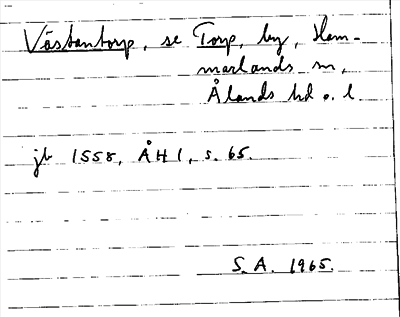 Västantorp, se Torp, by, Ham-
marlands sn,
Ålands hd o. l.
jb 1558, ÅH 1, s. 65.
S. A. 1965.